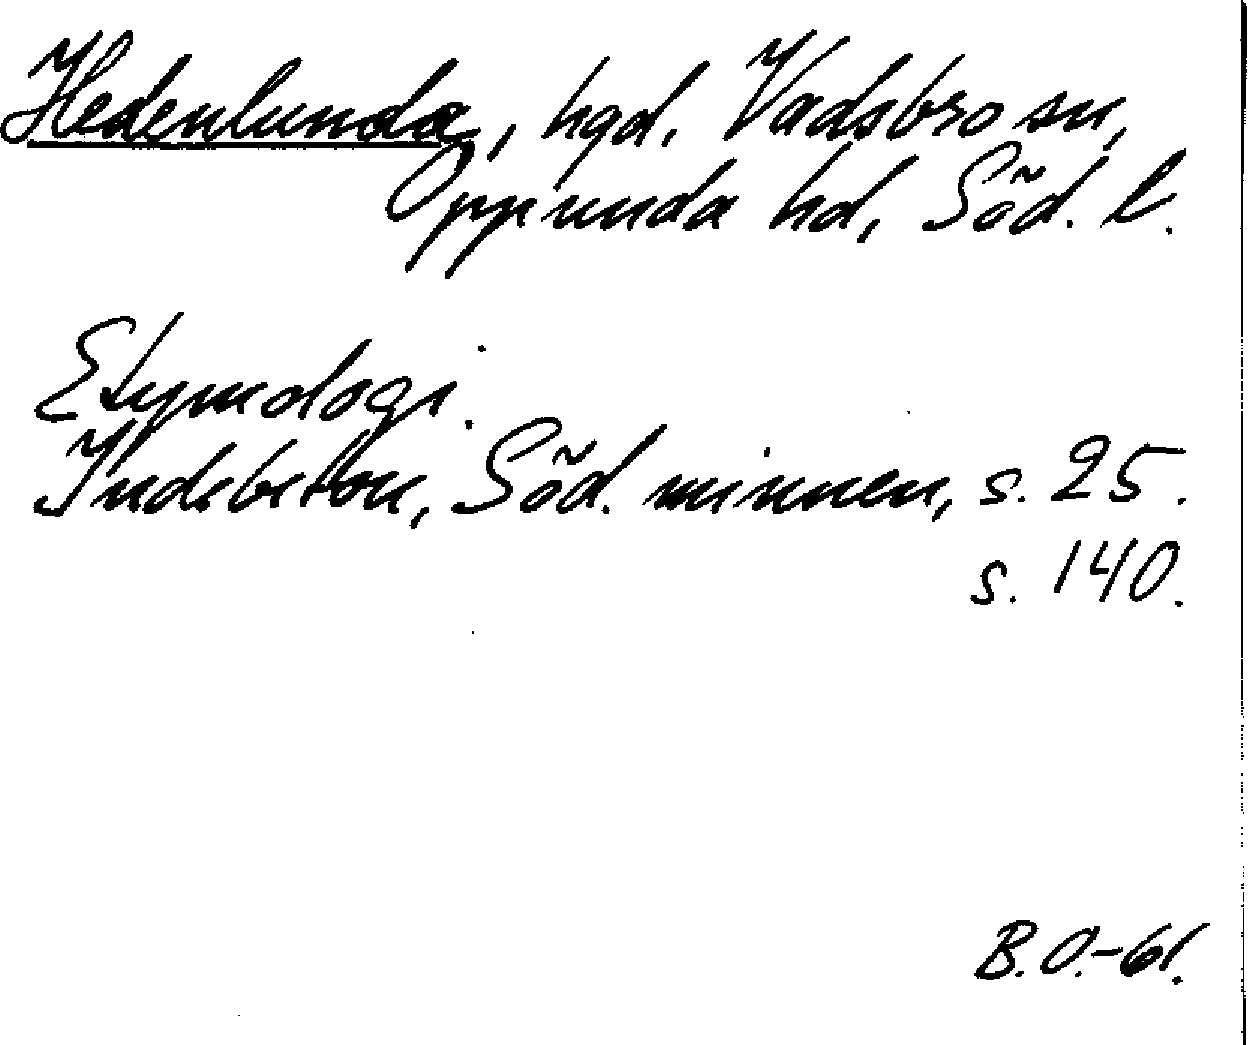 Hedenlunda, hgd. Vadsbro sn,
Oppunda hd, Söd. l.
Etymologi.
Indebetou, Söd. minnen, s. 25.
s. 140.
B.O.-61.